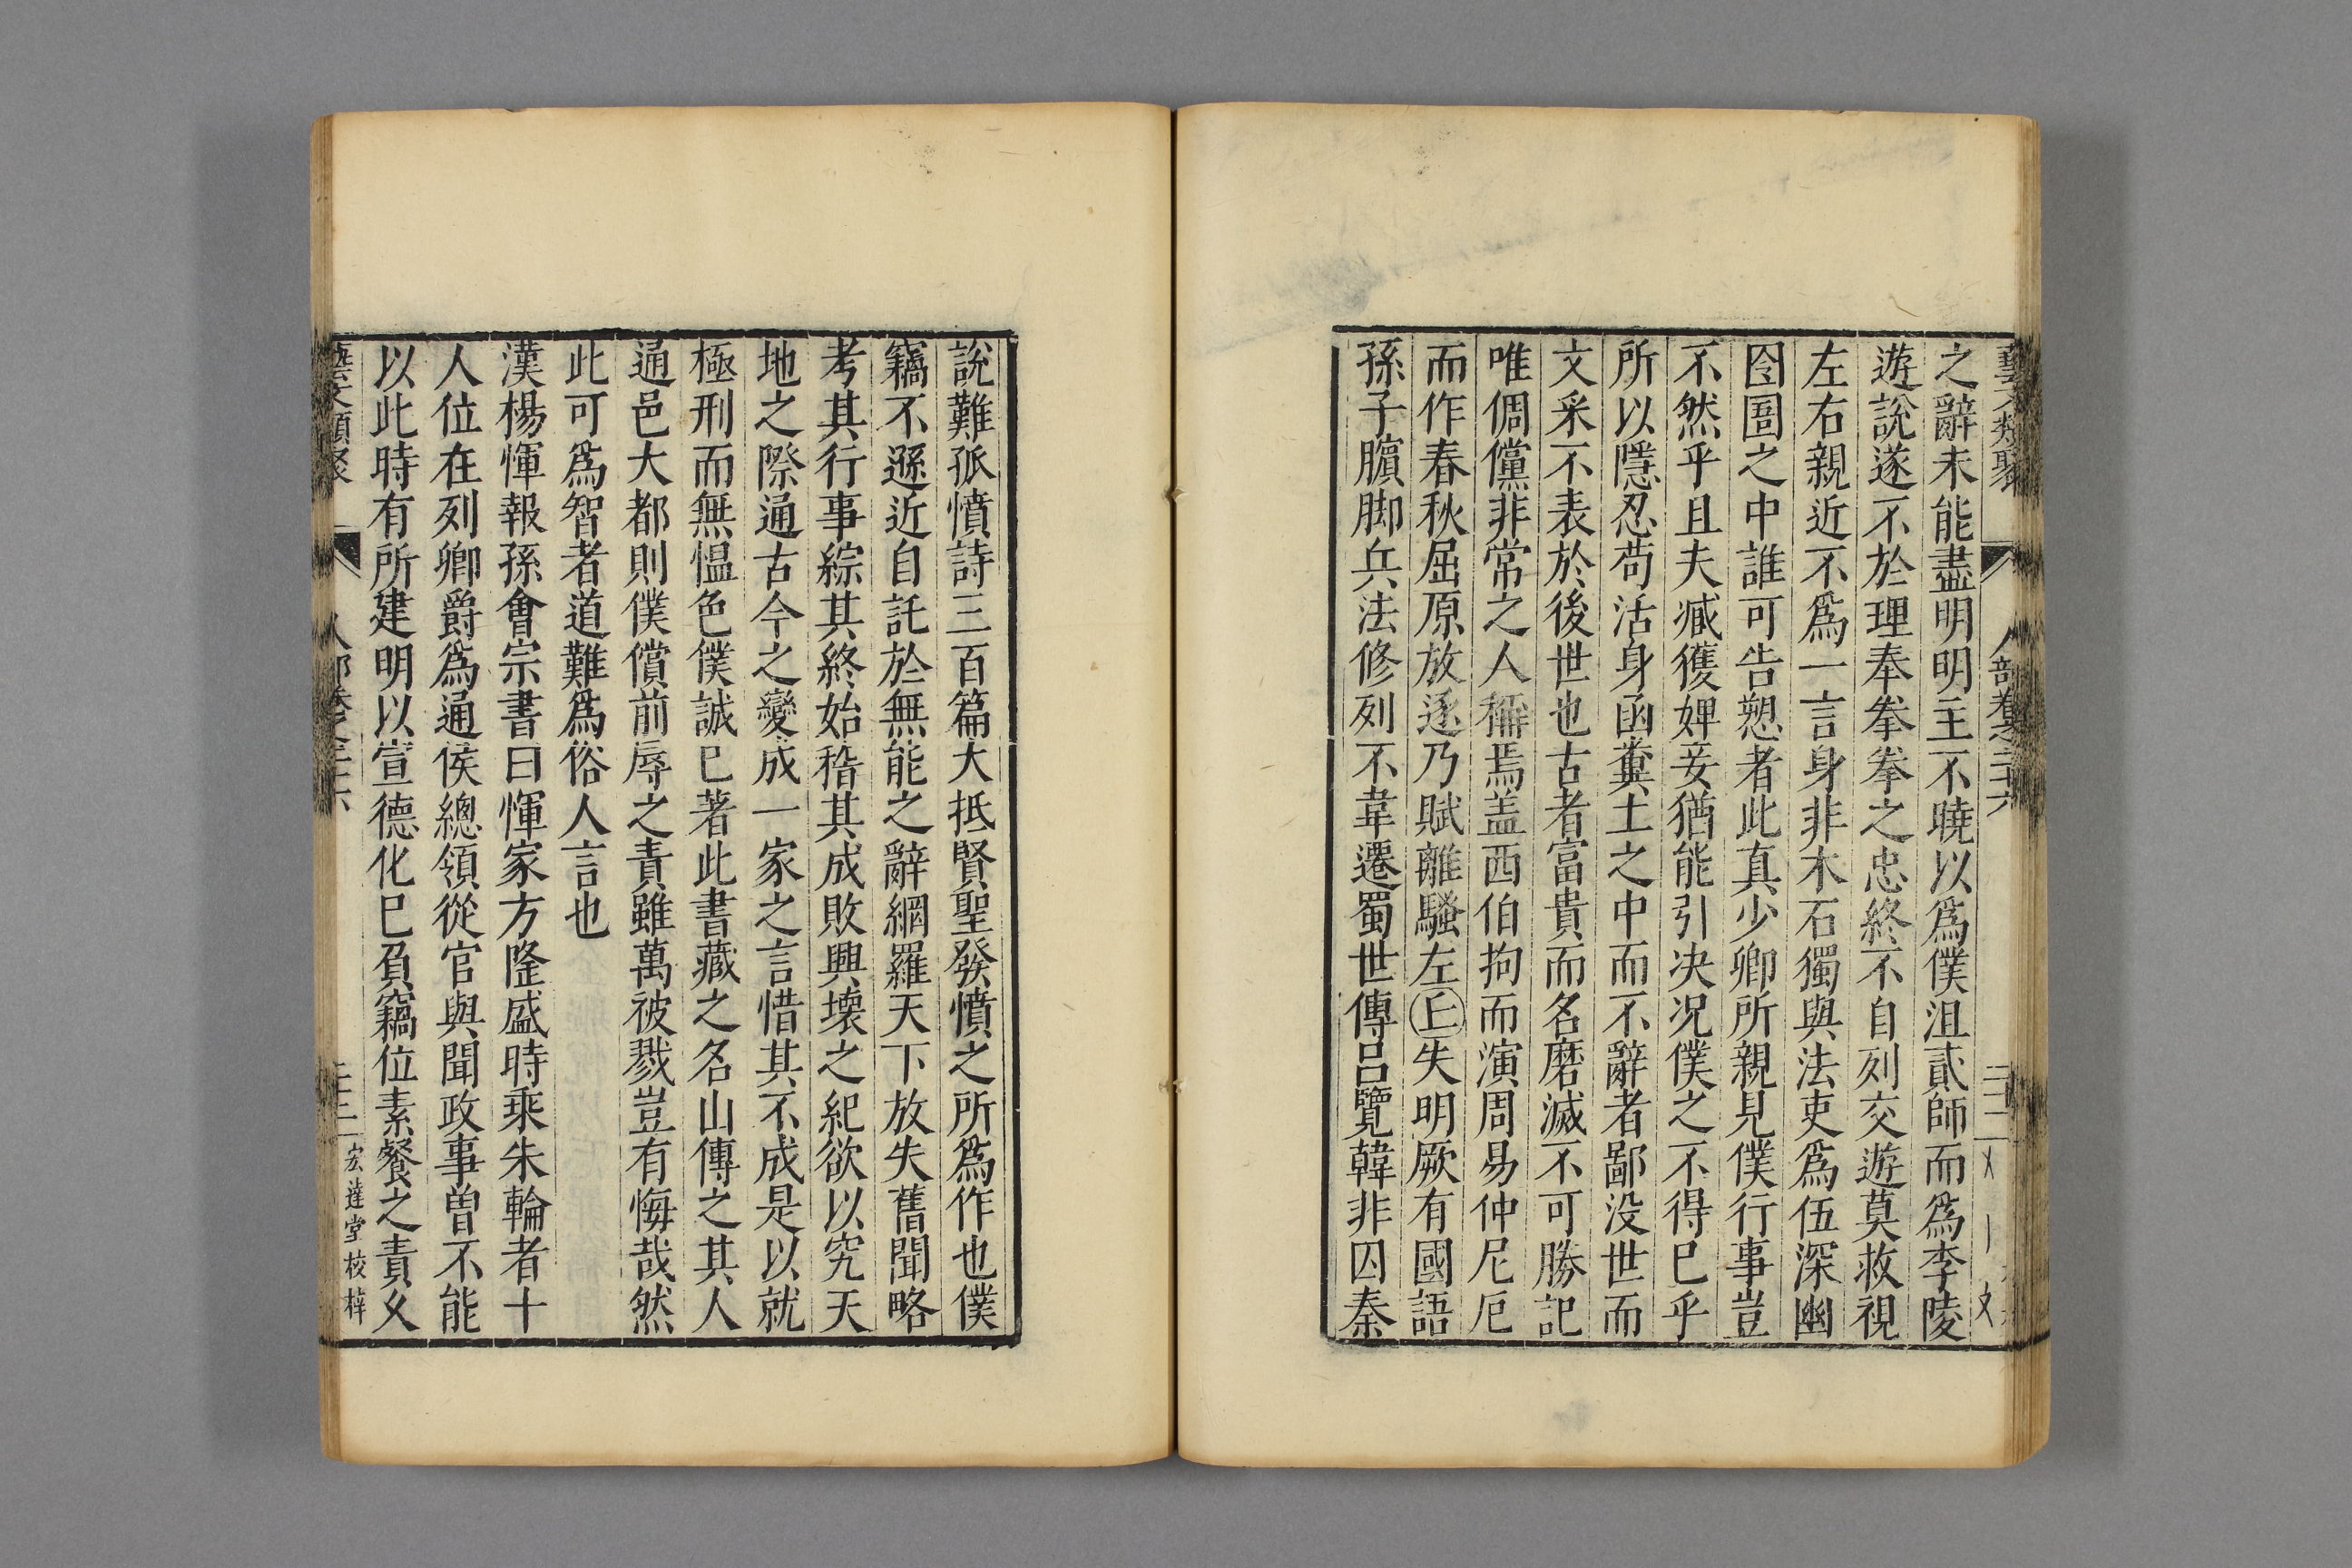 之辭未能盡明明主不曉以爲僕沮貳師而爲李陵
遊說遂不於理奉拳拳之忠終不自列交遊莫救視
左右親近不爲一言身非木石獨與法吏爲伍深幽
囹圄之中誰可告愬者此真少卿所親見僕行事豈
不然乎且夫臧獲婢妾猶能引决况僕之不得已乎
所以隱忍苟活身函糞土之中而不辭者鄙没世而
文采不表於後世也古者富貴而名磨滅不可勝記
唯倜儻非常之人稱焉盖西伯拘而演周易仲尼厄
而作春秋屈原放逐乃賦離騷左丘失明厥有國語
孫子臏脚兵法修列不韋遷蜀世傳呂覽韓非囚秦
說難孤憤詩三百篇大抵賢聖發憤之所爲作也僕
竊不遜近自託於無能之辭網羅天下放失舊聞略
考其行事綜其終始稽其成敗興壞之紀欲以究天
地之際通古今之變成一家之言惜其不成是以就
極刑而無愠色僕誠已著此書藏之名山傳之其人
通邑大都則僕償前辱之責雖萬被戮豈有悔哉然
此可爲智者道難爲俗人言也
漢楊惲報孫會宗書曰惲家方隆盛時乘朱輪者十
人位在列卿爵爲通侯總領從官與聞政事曽不能
以此時有所建明以宣德化已負竊位素餐之責久
藝文類聚 人部卷之二十六 二十二 宏達堂校梓